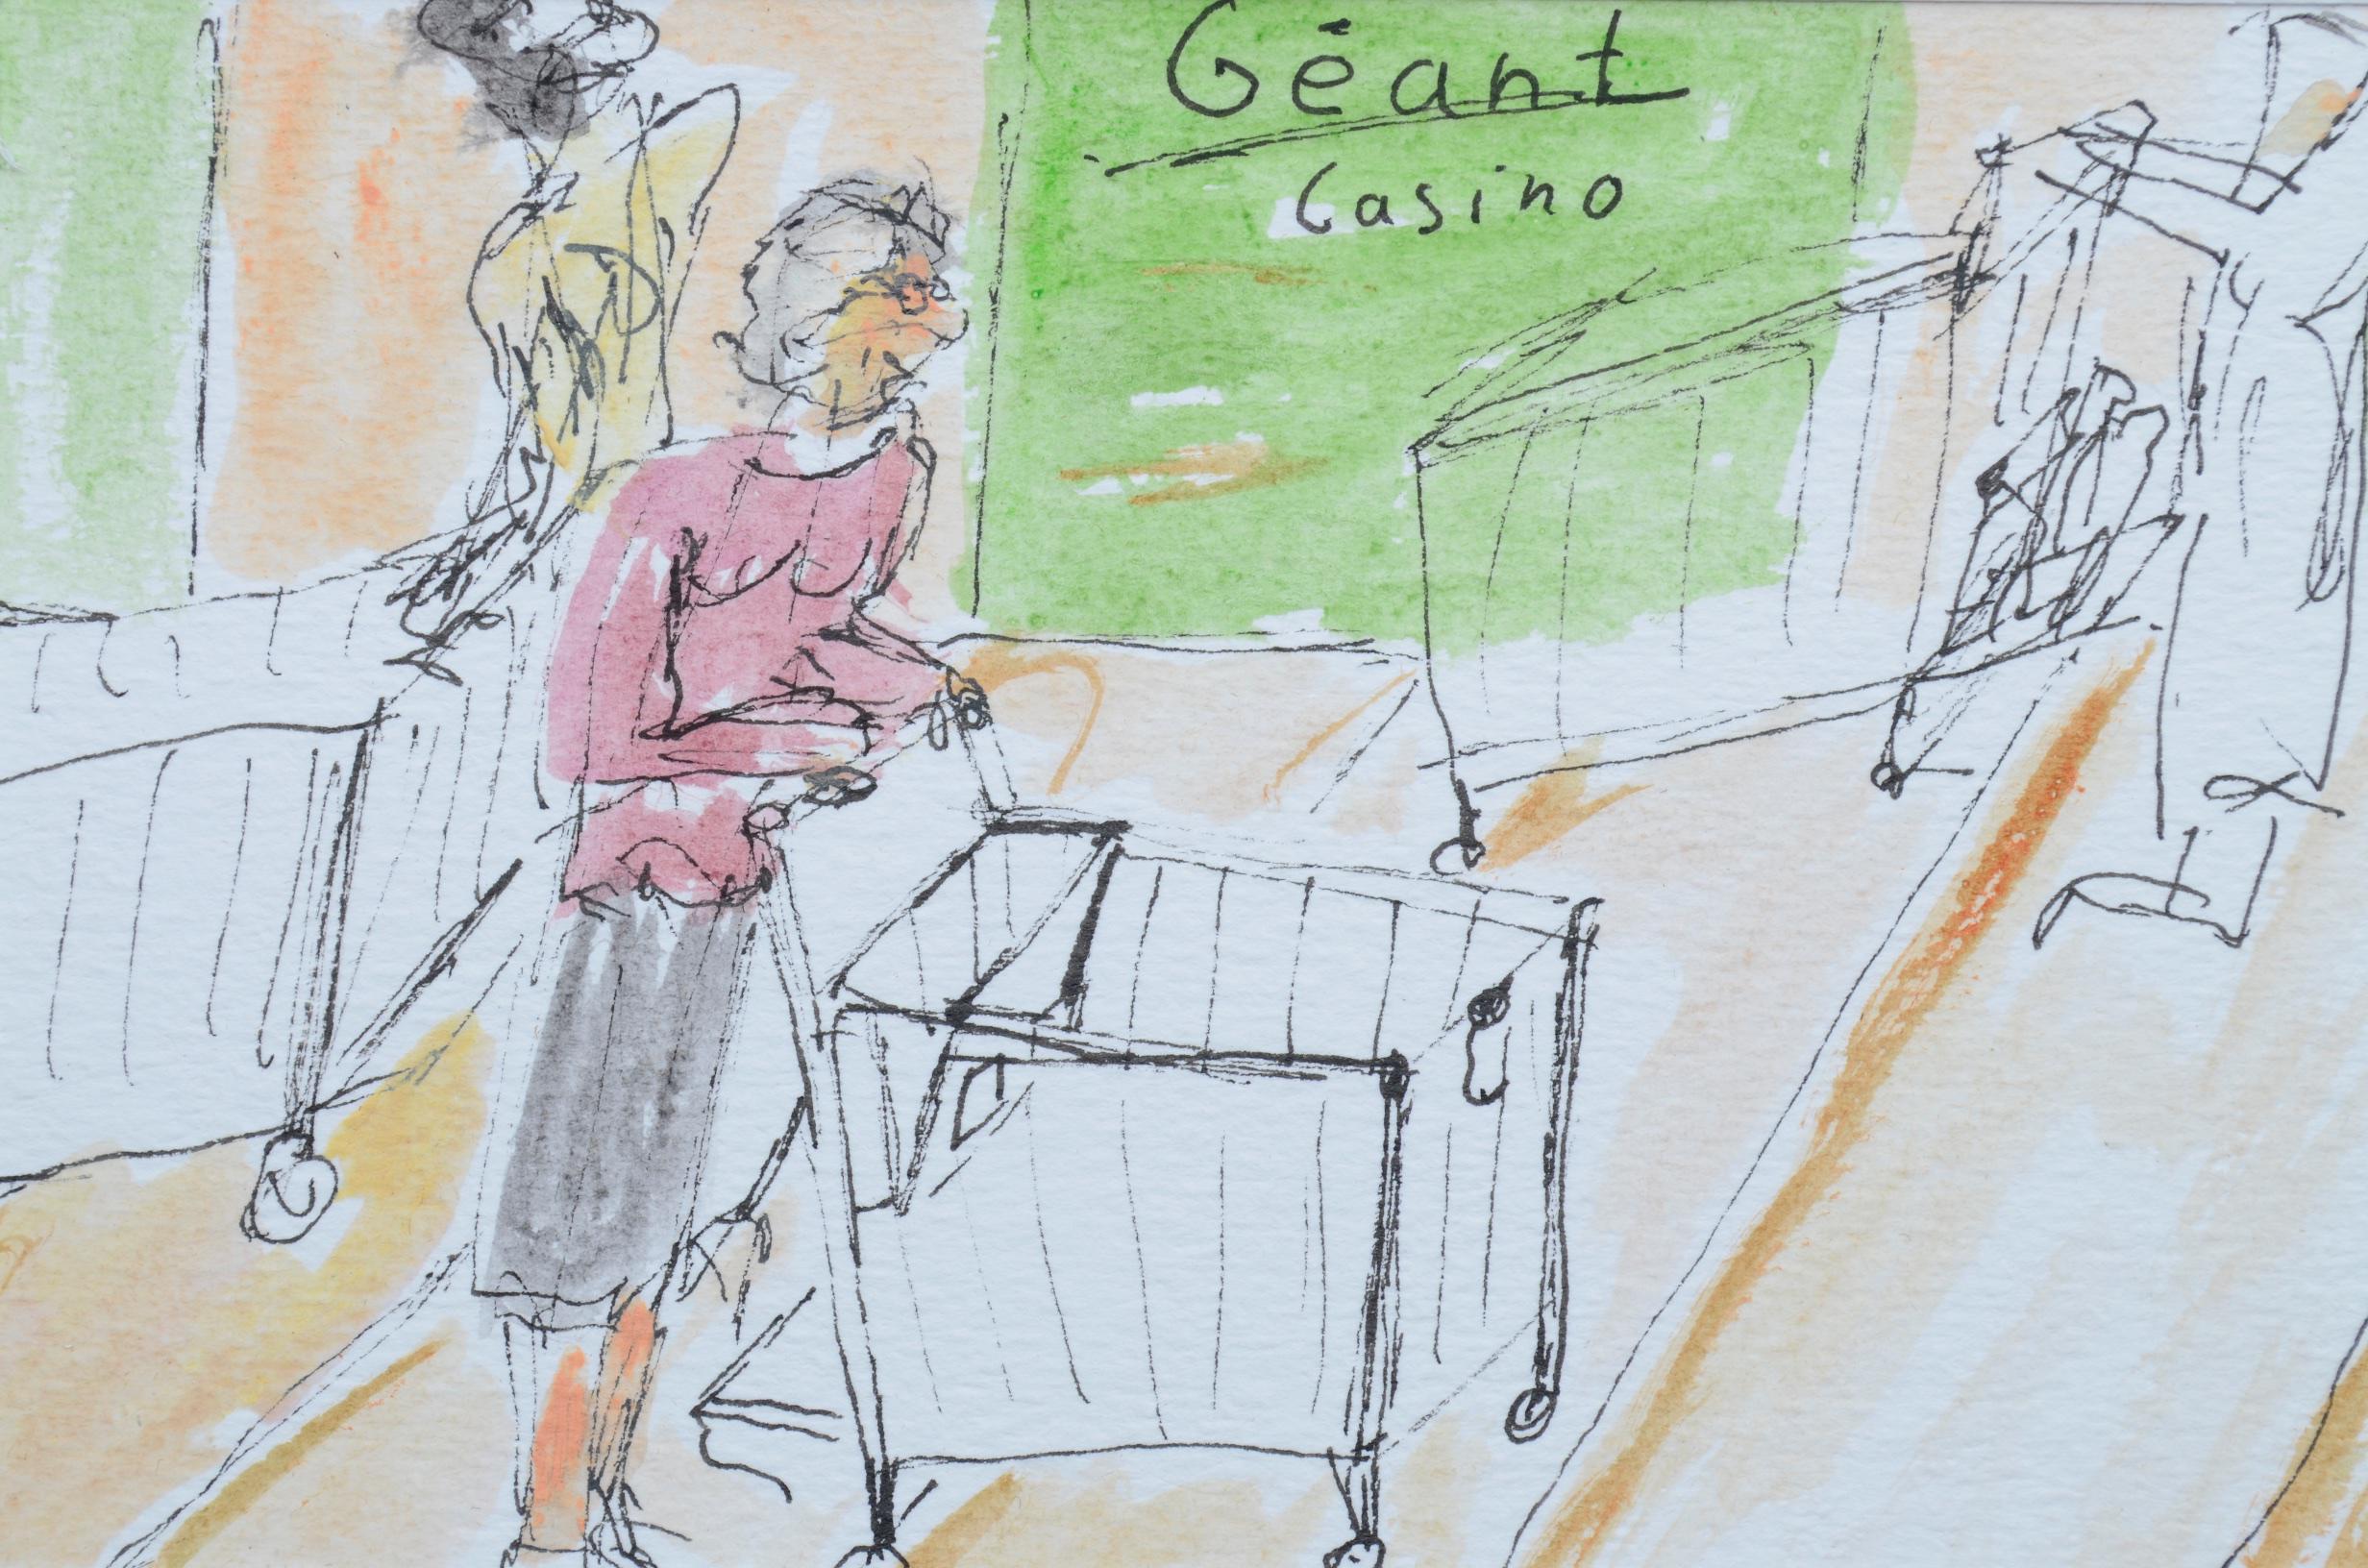 Géant
Casino